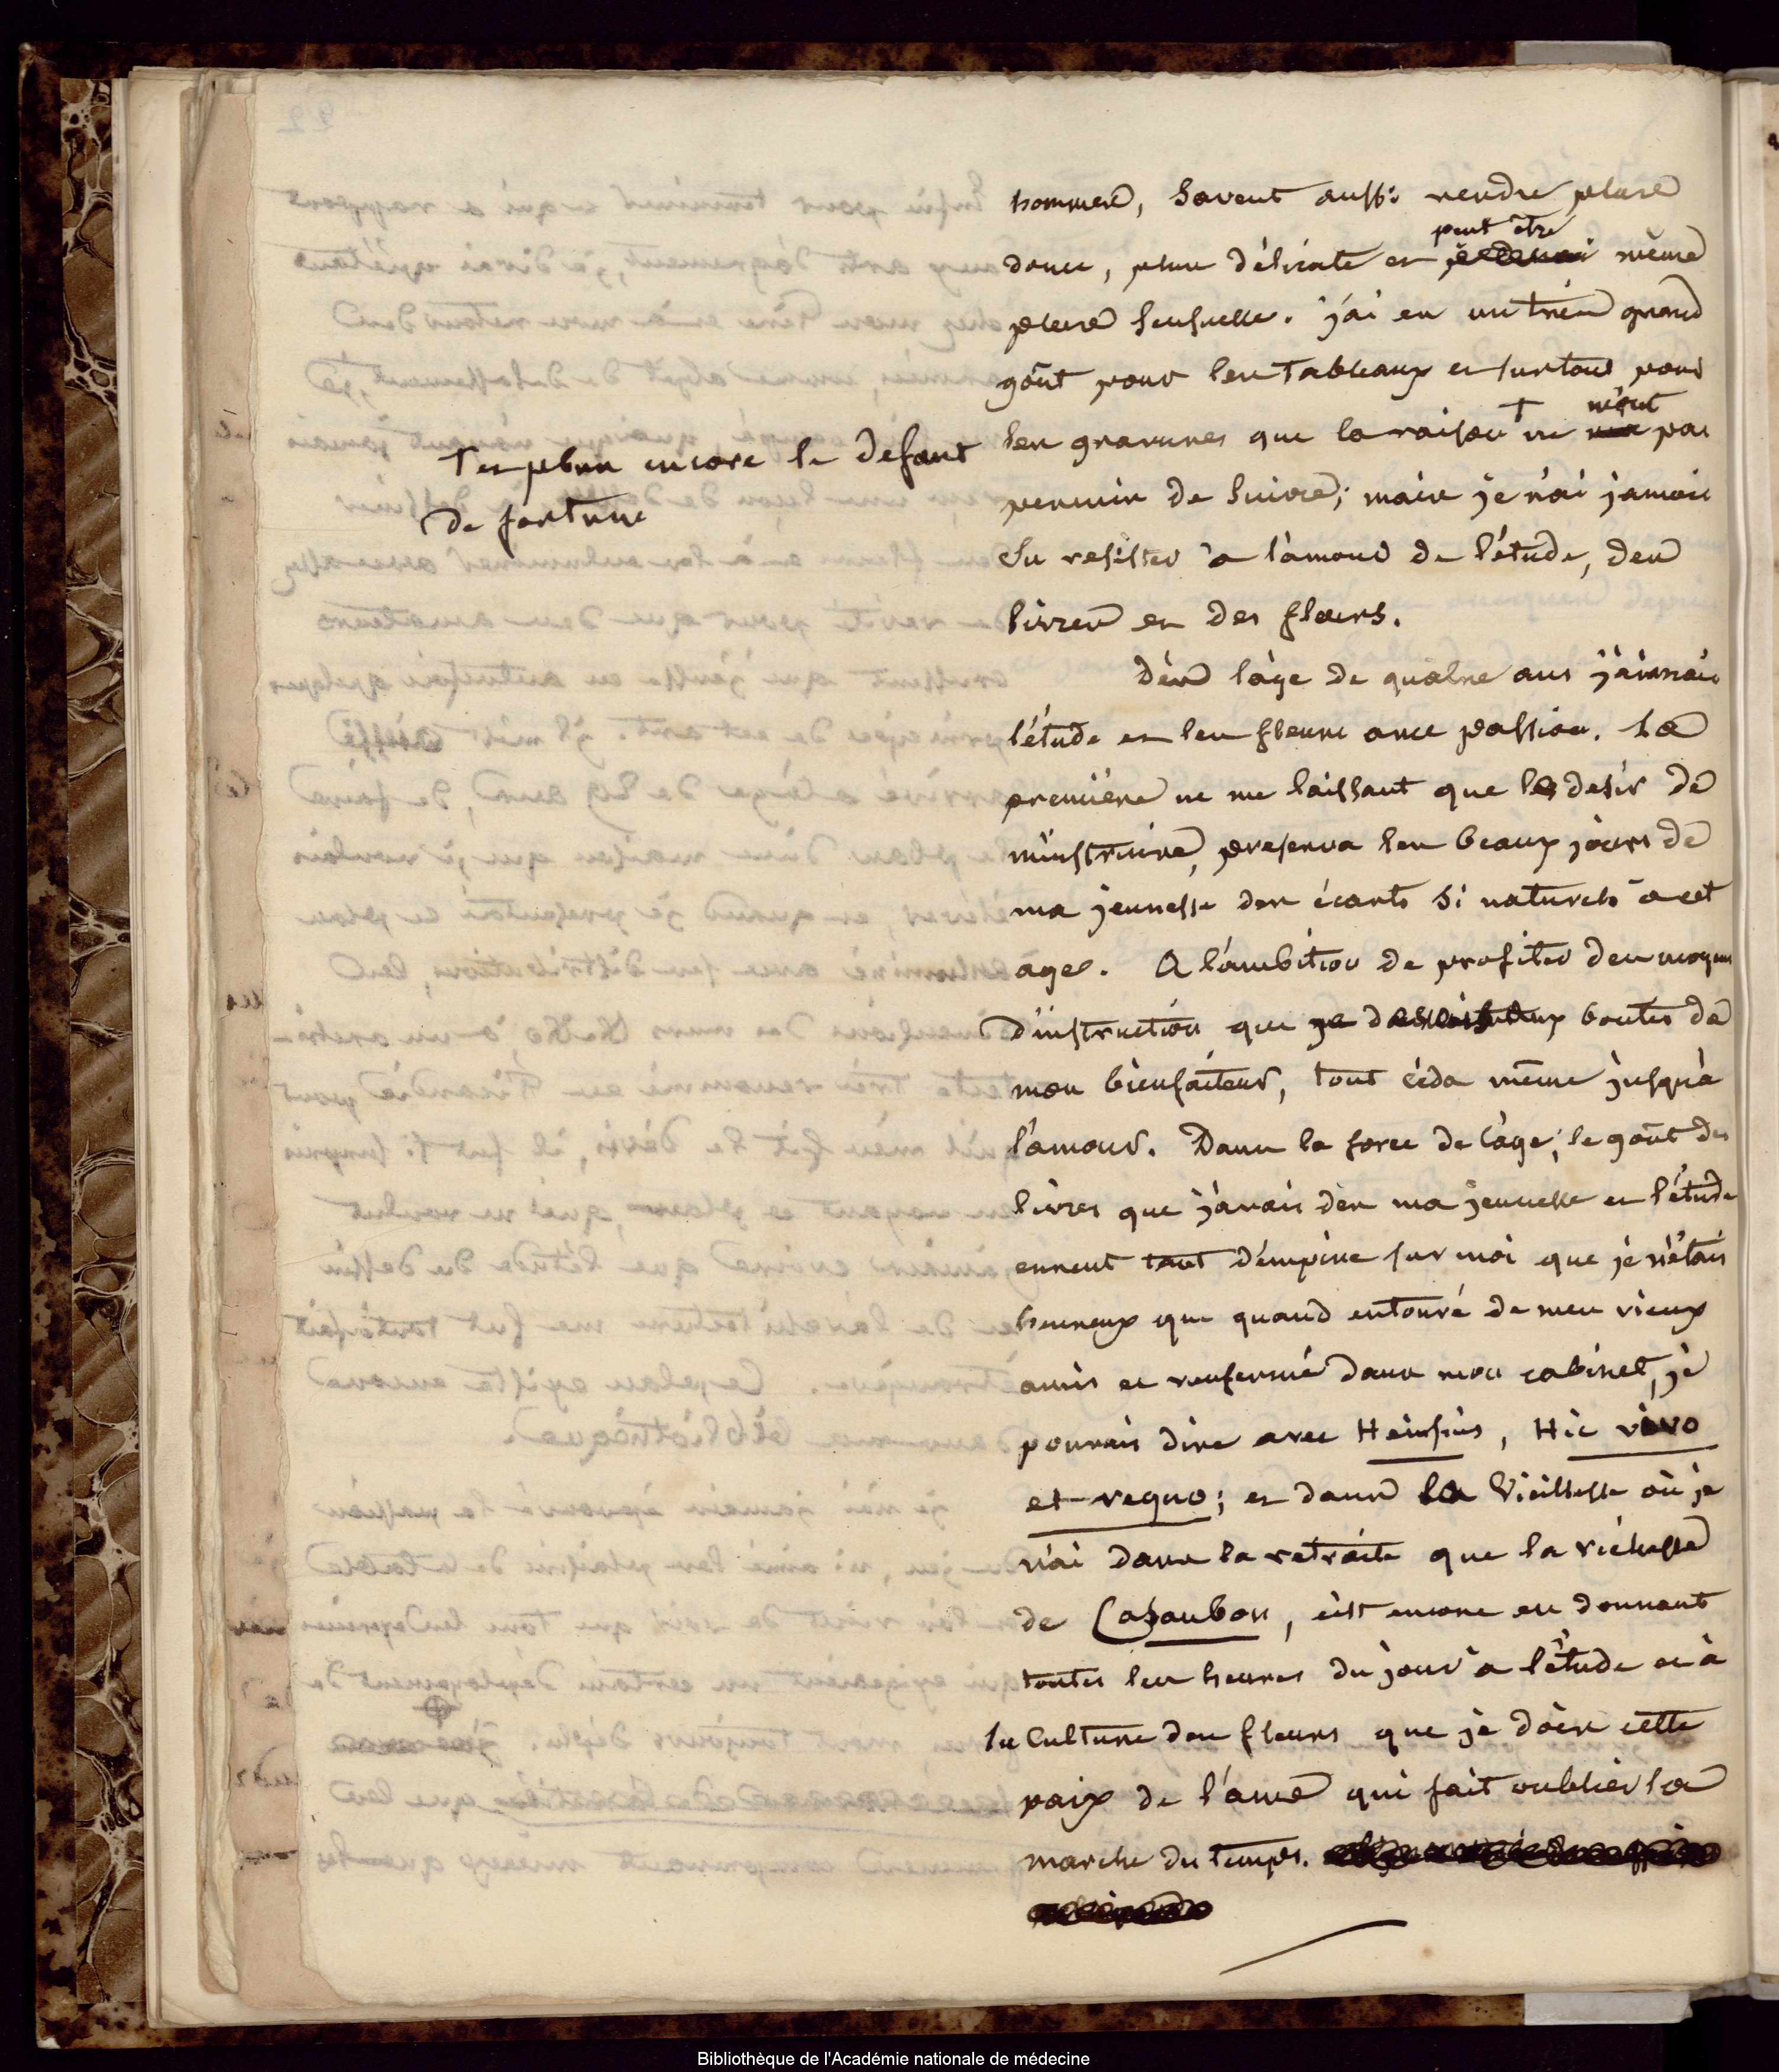 hommes, savent aussi rendre plus
douce, plus délicate et peut être même
plus sensuelle. j'ai eu un très grand
goût pour les Tableaux et surtout pour
les gravures que la raison † ne m'ont pas
† et plus encore le defaut
de fortune
permis de suivre; mais je n'ai jamais
su resister à l'amour de l'étude, des
livres et des fleurs.
Dès l'âge de quatre ans j'aimais
l'étude et les fleurs avec passion. La
première ne me laissant que le desir de
m'instruire, preserva les beaux jours de
ma jeunesse des écarts si naturels à cet
age. A l'ambition de profiter des moyens
d'instruction que aux bontés de
mon bienfaiteur, tout céda même jusqu'à
l'amour. Dans la force de l'age, le goût des
livres que j'avais dès ma jeunesse et l'étude
eurent tant d'empire sur moi que je n'étais
heureux que quand entouré de mes vieux
amis et renfermé dans mon cabinet, je
pouvais dire avec Heinsius, Hic vivo
et regno; et dans la Vieillesse où je
n'ai dans la retraite que la richesse
de Casaubon, c'est encore en donnant
toutes les heures du jour à l'étude et à
la Culture des fleurs que je dois cette
paix de l'ame qui fait oublier la
marche du temps.
Bibliothèque de l'Académie nationale de médecine